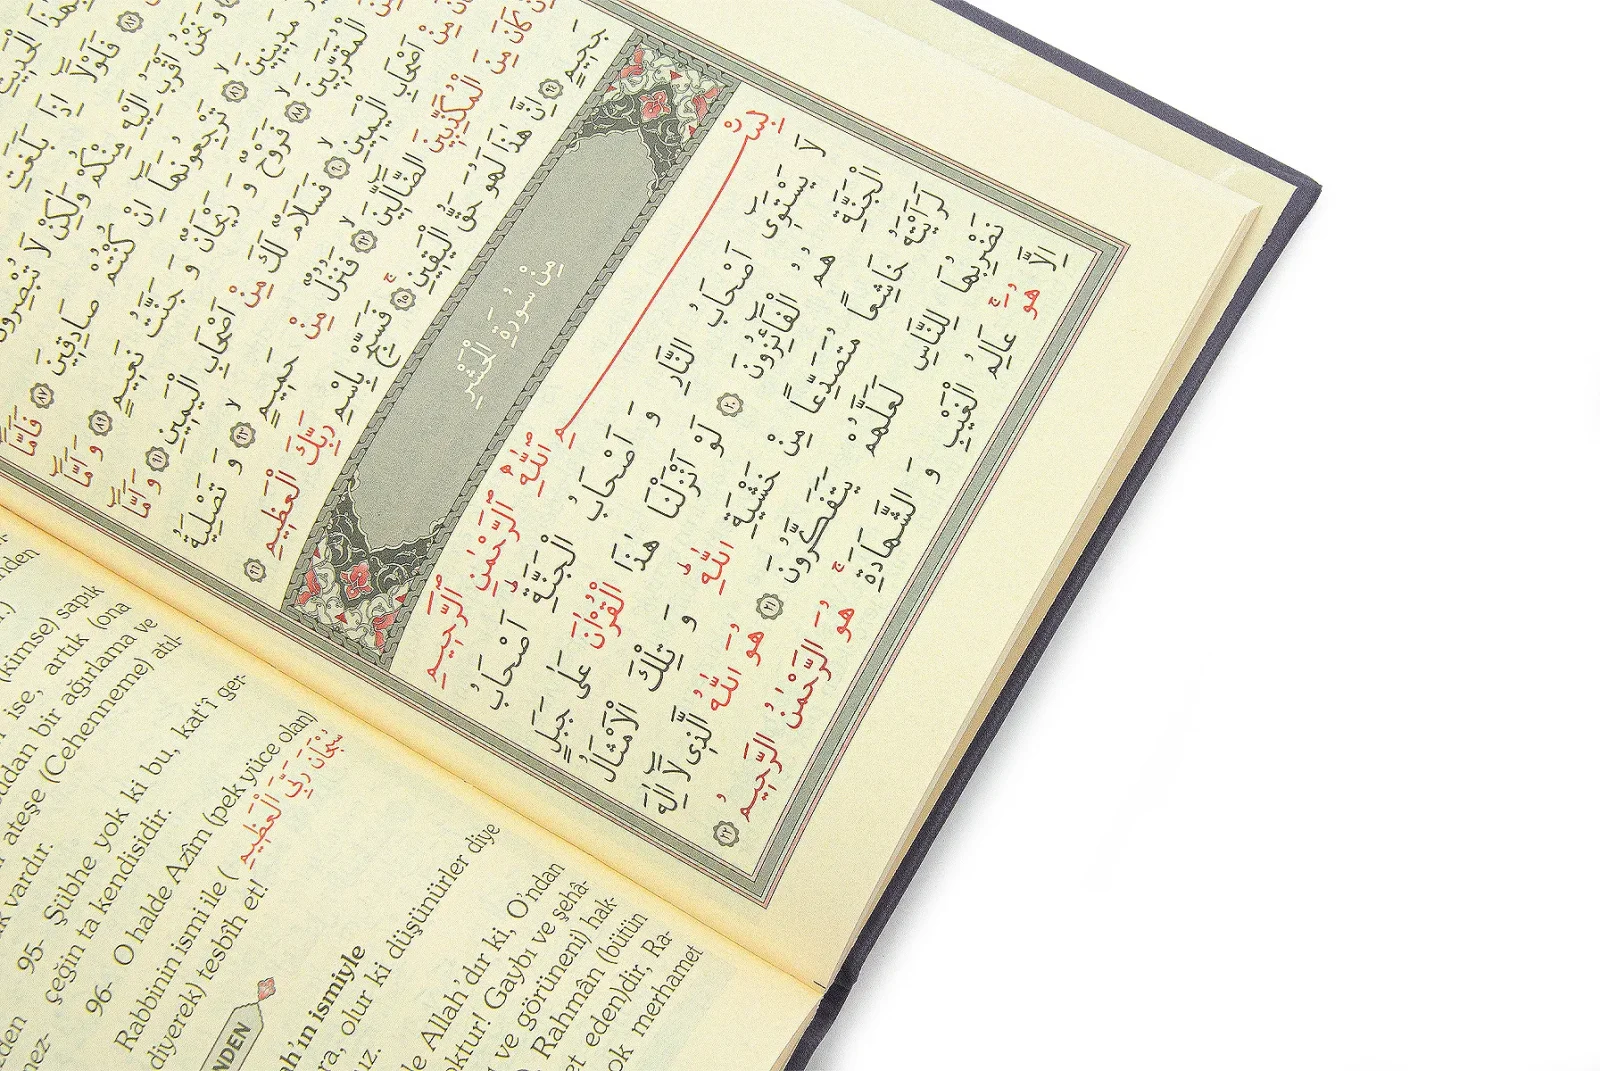 هٰذَا الْحَدِيثِ
﴿٨٢﴾ فَلَوْلَٓا اِذَا بَلَغَتِ
وَنَحْنُ اَقْرَبُ اِلَيْهِ مِنْكُمْ وَلٰكِنْ لَا تُبْصِرُونَ
مَدِينِينَۙ ﴿٨٦﴾ تَرْجِعُونَهَٓا اِنْ كُنْتُمْ صَادِقِينَ ﴿٨٧﴾ فَاَمَّٓا
الْمُقَرَّبِينَۙ ﴿٨٨﴾ فَرَوْحٌ وَرَيْحَانٌ وَجَنَّتُ نَعِيمٍ ﴿٨٩﴾ وَاَمَّٓا
مِنْ اَصْحَابِ الْيَمِينِۙ ﴿٩٠﴾ فَسَلَامٌ لَكَ مِنْ اَصْحَابِ الْيَمِينِ ﴿٩١﴾ وَاَمَّٓا
كَانَ مِنَ الْمُكَذِّبِينَ الضَّٓالِّينَۙ ﴿٩٢﴾ فَنُزُلٌ مِنْ حَمِيمٍۙ ﴿٩٣﴾ وَتَصْلِيَةُ
جَحِيمٍ ﴿٩٤﴾ اِنَّ هٰذَا لَهُوَ حَقُّ الْيَقِينِۚ ﴿٩٥﴾ فَسَبِّحْ بِاسْمِ رَبِّكَ الْعَظِيمِ ﴿٩٦﴾
مِنْ سُورَةِ الْحَشْرِ
بِسْمِ اللّٰهِ الرَّحْمٰنِ الرَّحِيمِ
لَا يَسْتَوِٓى اَصْحَابُ النَّارِ وَاَصْحَابُ الْجَنَّةِۜ اَصْحَابُ
الْجَنَّةِ هُمُ الْفَٓائِزُونَ ﴿٢٠﴾ لَوْ اَنْزَلْنَا هٰذَا الْقُرْاٰنَ عَلٰى جَبَلٍ
لَرَاَيْتَهُ خَاشِعًا مُتَصَدِّعًا مِنْ خَشْيَةِ اللّٰهِۜ وَتِلْكَ الْاَمْثَالُ
نَضْرِبُهَا لِلنَّاسِ لَعَلَّهُمْ يَتَفَكَّرُونَ ﴿٢١﴾ هُوَ اللّٰهُ الَّذِى لَٓا اِلٰهَ
اِلَّا هُوَۚ عَالِمُ الْغَيْبِ وَالشَّهَادَةِۚ هُوَ الرَّحْمٰنُ الرَّحِيمُ ﴿٢٢﴾
(kimse) sapık
ise, artık (ona
bir ağırlama ve
ateşe (Cehenneme) atıl-
vardır.
95- Şübhe yok ki bu, kat'î ger-
çeğin ta kendisidir.
96- O halde Azîm (pek yüce olan)
Rabbinin ismi ile ( سُبْحَانَ رَبِّىَ الْعَظِيمِ
diyerek) tesbîh et!
NDEN
ah'ın ismiyle
olur ki düşünürler diye
Allah'dır ki, O'ndan
yoktur! Gaybı ve şehâ-
ve görüneni) hak-
Rahmân (bütün
et eden)dir, Ra-
ok merhamet